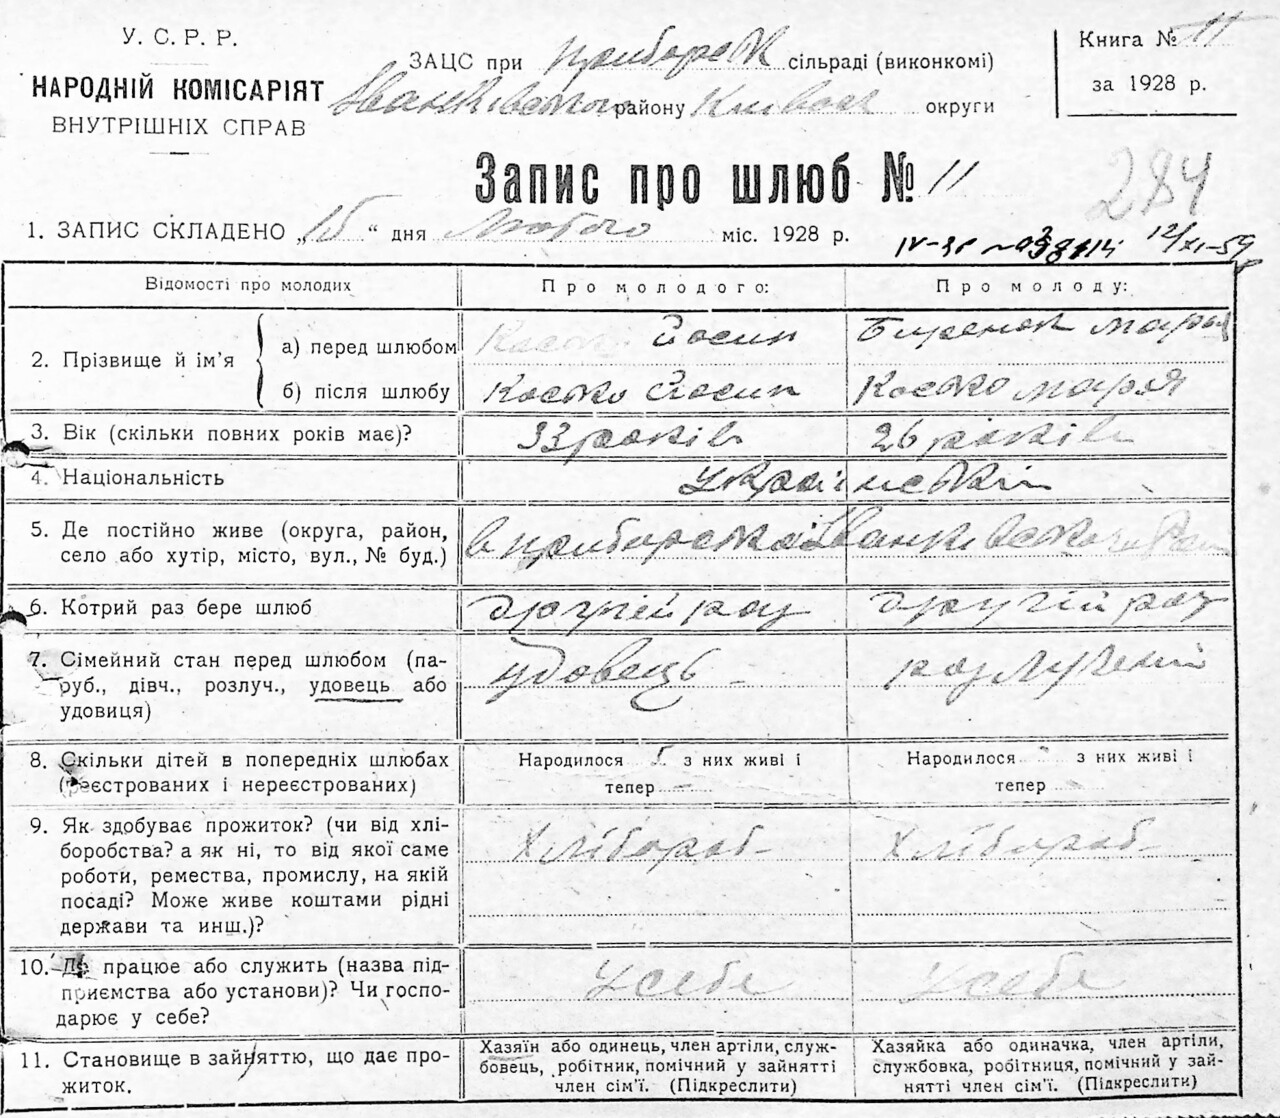 У. С. Р. Р.
НАРОДНІЙ КОМІСАРІЯТ
ВНУТРІШНІХ СПРАВ
ЗАЦС при сільраді (виконкомі)
району округи
Книга № 11
за 1928 р.
Запис про шлюб № 11
284
1. ЗАПИС СКЛАДЕНО „15“ дня Лютого міс. 1928 р.
12/XI-59
Відомості про молодих
Про молодого:
Про молоду:
2. Прізвище й ім'я
а) перед шлюбом
Йосип
Марья
б) після шлюбу
Костко Йосип
Костко Марія
3. Вік (скільки повних років має)?
33 років
26 років
4. Національність
Українській
5. Де постійно живе (округа, район,
село або хутір, місто, вул., № буд.)
6. Котрий раз бере шлюб
другий раз
другій раз
7. Сімейний стан перед шлюбом (па-
руб., дівч., розлуч., удовець або
удовиця)
удовець
8. Скільки дітей в попередніх шлюбах
(реєстрованих і нереєстрованих)
Народилося з них живі і
тепер
Народилося з них живі і
тепер
9. Як здобуває прожиток? (чи від хлі-
боробства? а як ні, то від якої саме
роботи, ремества, промислу, на якій
посаді? Може живе коштами рідні
держави та инш.)?
Хлібороб
Хлібороб
10. Де працює або служить (назва під-
приємства або установи)? Чи госпо-
дарює у себе?
У себе
У себе
11. Становище в зайняттю, що дає про-
житок.
Хазяїн або одинець, член артіли, служ-
бовець, робітник, помічний у зайнятті
член сім'ї. (Підкреслити)
Хазяйка або одиначка, член артіли,
службовка, робітниця, помічний у зай-
нятті член сім'ї. (Підкреслити)